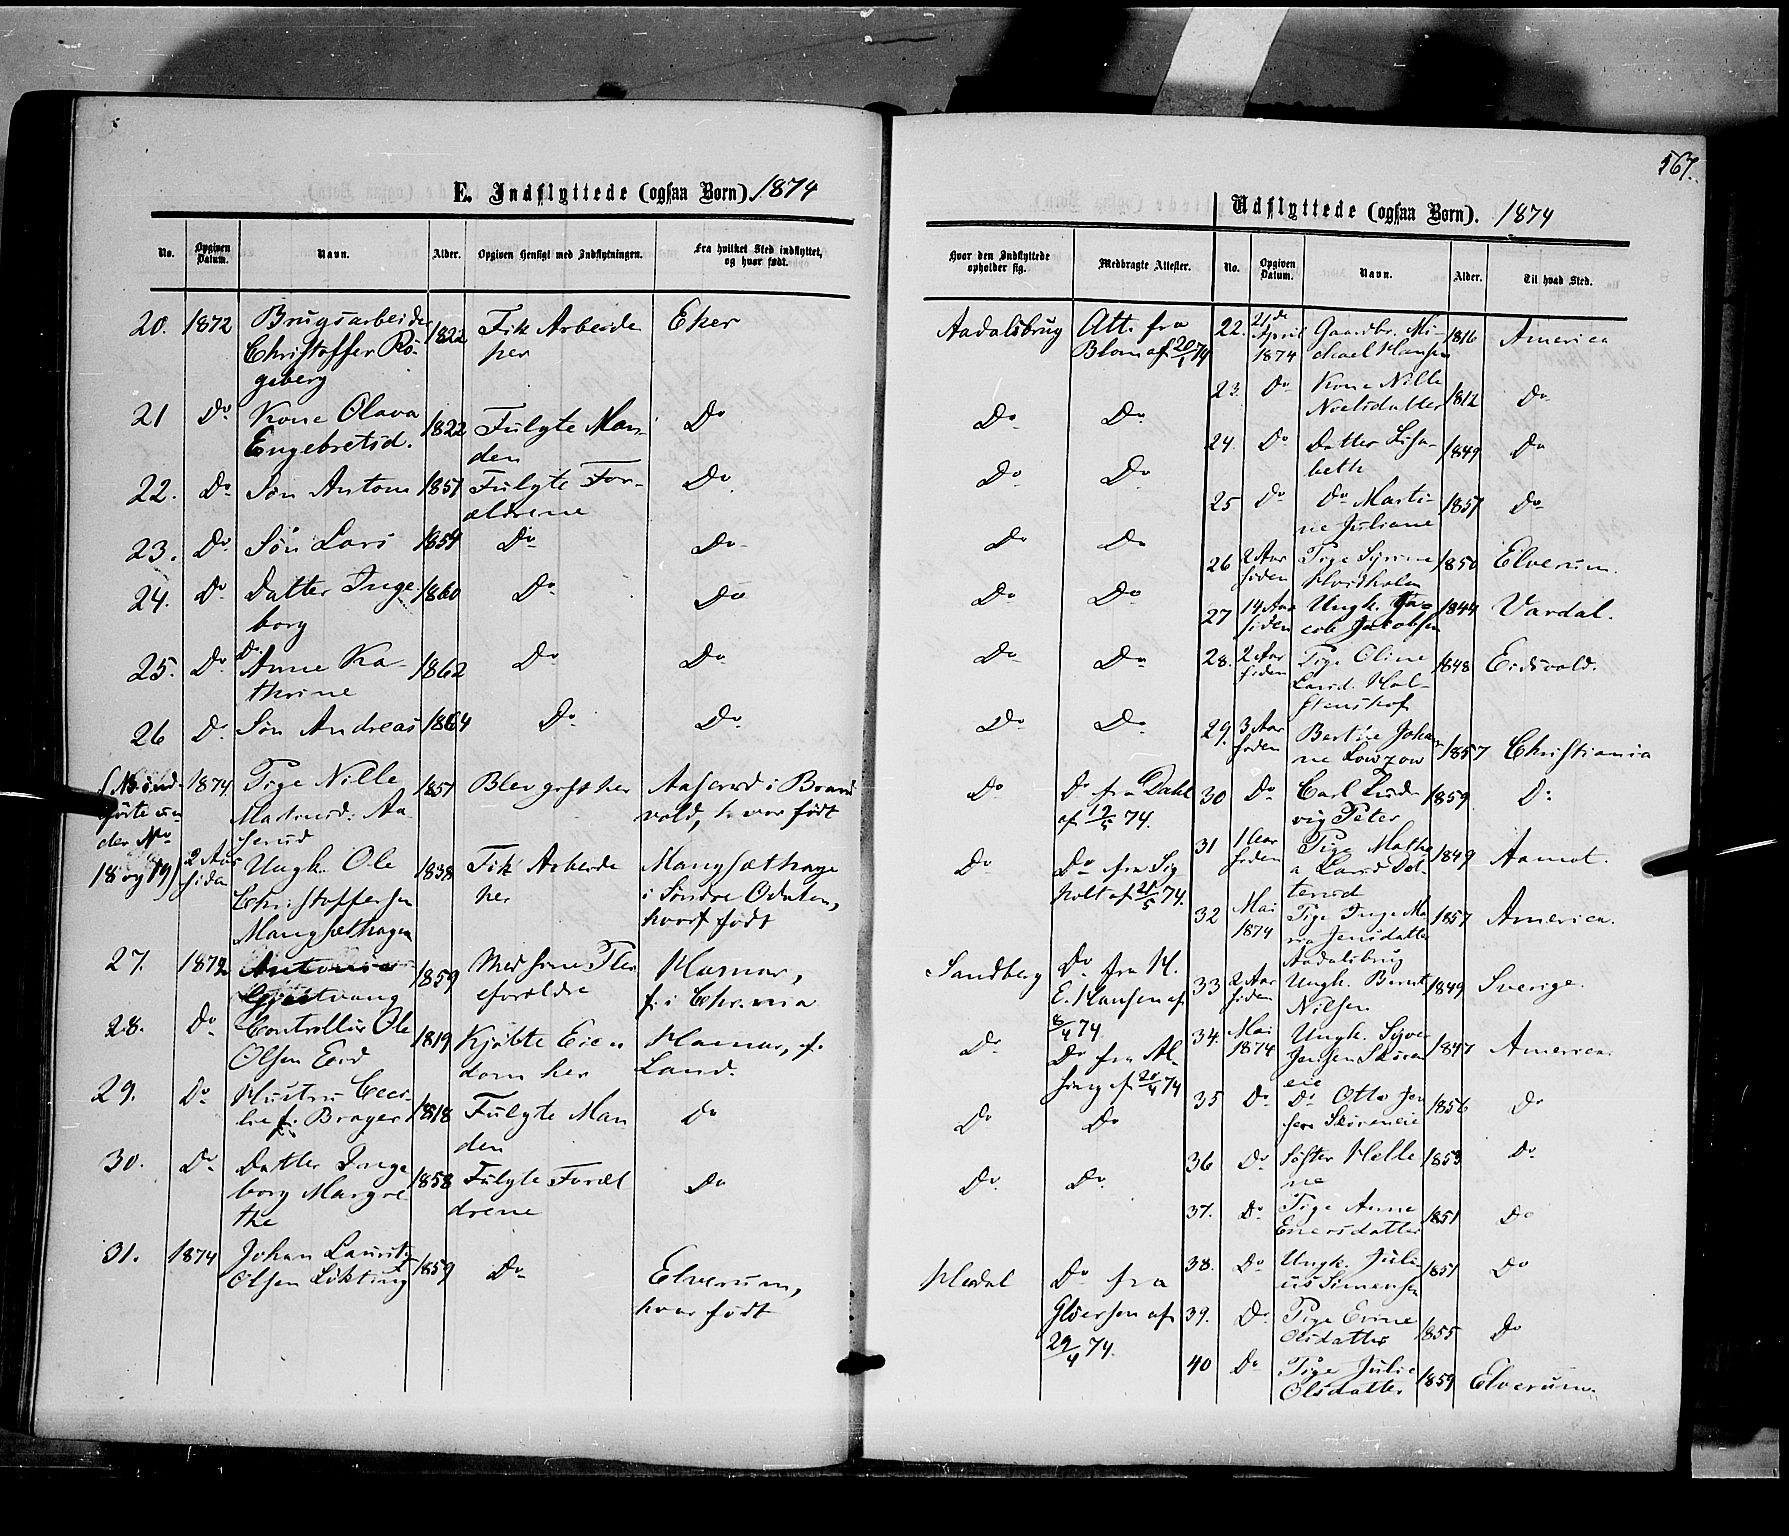 567.
E. Indflyttede (ogsaa Børn). 1874
No.
Opgiven Datum.
Navn.
Alder.
Opgiven Hensigt med Indflytningen.
Fra hvilket Sted indflyttet, og hvor født.
Hvor den Indflyttede opholder sig.
Medbragte Attester.
20. 1872 Brugsarbeider 1822 Fik Arbeide Eker Aadalsbrug Att. fra
Christoffer Rø- her Blom af 20/1 74
geberg
21 Do Kone Olava 1822 Fulgte Man- Do Do Do
Engebretsd. den
22. Do Søn Anton 1851 Fulgte For- Do Do Do
ældrene
23. Do Søn Lars 1854 Do Do Do Do
24. Do Datter Inge 1860 Do Do Do Do
borg
25. Do Do Anne Ka- 1862 Do Do Do Do
thrine
26 Do Søn Andreas 1864 Do Do Do Do
(No ind- 1874. Pige Nille 1851 Blev gift her Aaserud i Brand Do Do fra Dahl
førte un- Martinsd. Aa- vold, hvor født af 12/5 74.
der No serud
18 og 19) 2 Aar Ungk. Ole 1838 Fik Arbeide Mangsæthage Do Do fra Sig
siden Christoffersen her i Søndre Odalen, holt af 21/5 74.
Mangsæthagen hvor født
27. 1872 Antonie 1859 Med sine Plei Hamar, Sandberg Do fra H.
Gjestvang eforældre f. i Chr.ania E. Hansen af
8/4 74.
28. Do Controllør Ole 1819 Kjøbte Eien Hamar, f. Do Do fra Al
Olsen Eid dom her Land. sing af 20/4 74
29. Do Hustru Ceci- 1818 Fulgte Man Do Do Do
lie f. Brager den
30. Do Datter Inge 1858 Fulgte Foræl Do Do Do
borg Margre drene
the
31. 1874 Johan Laurits 1859 Do Elverum, Do fra
Olsen Løkting hvor født
29/4 74.
Udflyttede (ogsaa Børn). 1874
No.
Opgiven Datum.
Navn.
Alder.
Til hvad Sted.
22. 21de Gaardbr. Mi- 1816 America
April chael Hansen
1874
23. Do Kone Nille 1812 Do
Noelsdatter
24. Do Datter Lisa- 1849 Do
beth
25 Do Do Marti- 1857 Do
ne Juliane
26 2 Aar Pige 1850 Elverum.
siden
27 14 Aar Ungk. Ja- 1844 Vardal.
siden cob Jakobsen
28. 2 Aar Pige Oline 1848 Eidsvold.
siden Larsd. Hol-
stenshof
29. 3 Aar Bertine Johan 1857 Christiania
siden ne Lowzow
30 Do Carl Lud- 1859. Do
vig Peter
31 1 Aar Pige Mathe 1849 Aamot.
siden a Larsd
32 Mai Pige Inge Ma 1857 America.
1874 ria Jensdatter
Aadalsbrug
33 2 Aar Ungk. Bernt 1849 Sverige.
siden Nilsen
34. Mai Ungk. Syver 1847 America.
1874 Jensen Skøren
eie
35 Do Do Otto Jen 1856 Do
sen Skøreneie
36 Do Søster Helle 1853 Do
ne
37. Do Pige Anne 1851 Do
Enersdatter
38. Do Ungk. Juli- 1851 Do
us Simensen
39. Do Pige Eline 1855 Do
Olsdatter
40 Do Pige Julie 1859 Elverum.
Olsdatter